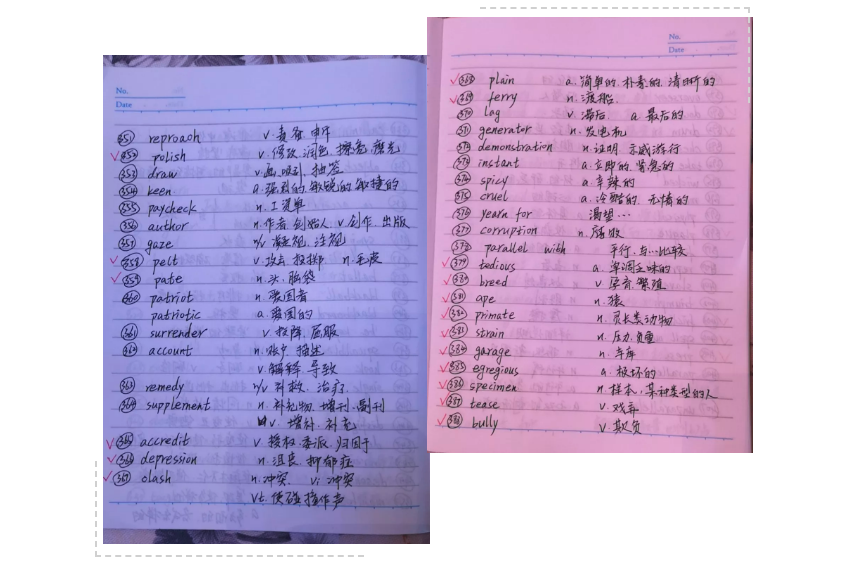 No.
Date
351 reproach v.责备 申斥
352 polish v.修改 润色 擦亮 磨光
353 draw v.画 吸引 抽签
354 keen a.强烈的 敏锐的 敏捷的
355 paycheck n.工资单
356 author n.作者 创始人 v.创作 出版
357 gaze n/v 凝视 注视
358 pelt v.攻击 投掷 n.毛皮
359 pate n.头.脑袋
360 patriot n.爱国者
patriotic a.爱国的
361 surrender v.投降.屈服
362 account n.账户.描述
v.解释.导致
363 remedy n/v 补救.治疗
364 supplement n.补充物.增刊.副刊
v.增补.补充
365 accredit v.授权.委派.归因于
366 depression n.沮丧.抑郁症
367 clash n.冲突 vi.冲突
vt.使碰撞作声
No.
Date
368 plain a.简单的.朴素的.清晰的
369 ferry n.渡船
370 lag v.滞后 a.最后的
371 generator n.发电机
372 demonstration n.证明.示威游行
373 instant a.立即的.紧急的
374 spicy a.辛辣的
375 cruel a.冷酷的.无情的
376 yearn for 渴望…
377 corruption n.腐败
378 parallel with 平行.与…比较
379 tedious a.单调乏味的
380 breed v.孕育.繁殖
381 ape n.猿
382 primate n.灵长类动物
383 strain n.压力.负重
384 garage n.车库
385 egregious a.极坏的
386 specimen n.样本.某种类型的人
387 tease v.戏弄
388 bully v.欺负